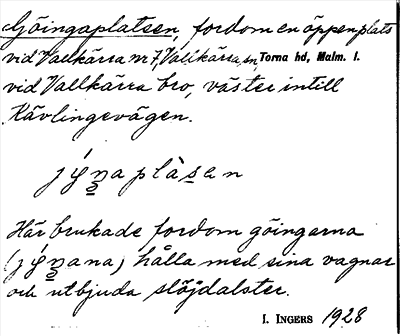 Göingaplatsen, fordom en öppen plats
vid Vallkärra nr 7, Vallkärra sn, Torna hd, Malm. l.
vid Vallkärra bro, väster intill
Kävlingevägen.
jýŋaplàsen
Här brukade fordom göingarna
(jýŋana) hålla med sina vagnar
och utbjuda slöjdalster.
I. INGERS 1928